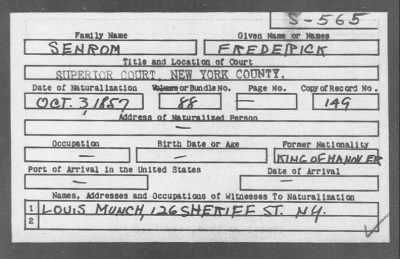 S-565
Family Name Given Name or Names
SENROM FREDERICK
Title and Location of Court
SUPERIOR COURT, NEW YORK COUNTY.
Date of Naturalization Volume or Bundle No. Page No. Copy of Record No.
OCT. 3, 1857 88 — 149
Address of Naturalized Person
—
Occupation Birth Date or Age Former Nationality
— — KING OF HANOVER
Port of Arrival in the United States Date of Arrival
— —
Names, Addresses and Occupations of Witnesses To Naturalization
1 LOUIS MUNCH, 126 SHERIFF ST. N.Y.
2